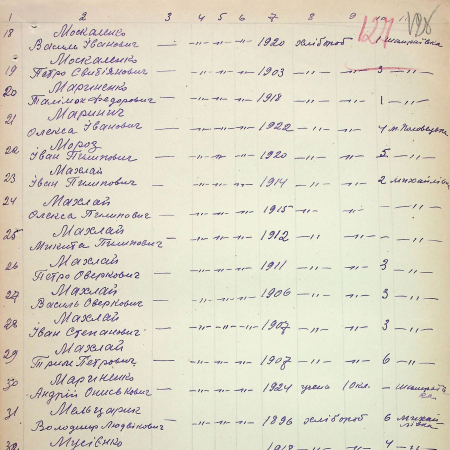 1 2 3 4 5 6 7 8 9
127
18 Москаленко
Василь Іванович — —"— —"— —"— 1920 хлібороб —"— 1
19 Москаленко
Петро — —"— —"— —"— 1903 —"— —"— 3 —"—
20 Мариненко
Федорович — —"— —"— —"— 1918 —"— —"— 1 —"—
21 Маринич
Олекса Іванович — —"— —"— —"— 1922 —"— —"— 4
22 Мороз
Іван Пилипович — —"— —"— —"— 1920 —"— —"— 5 —
23 Махлай
Іван Пилипович —"— —"— —"— 1914 —"— —"— 2
24 Махлай
Олекса Пилипович — —"— —"— —"— 1915 —"— —"— — —"—
25 Махлай
Микита Пилипович — —"— —"— —"— 1912 —"— —"— — —"—
26 Махлай
Петро Оверкович — —"— —"— —"— 1911 —"— —"— 3 —"—
27 Махлай
Василь Оверкович — —"— —"— —"— 1906 —"— —"— 3 —"—
28 Махлай
Іван Степанович — —"— —"— —"— 1907 —"— —"— 3 —"—
29 Махлай
Петрович — —"— —"— —"— 1907 —"— —"— 6 —"—
30 Мариненко
Андрій Ониськович — —"— —"— —"— 1924 учень 10 кл. —
31 Мельцарин
Володимир Людвікович — —"— —"— —"— 1896 хлібороб 6 Михай-
лівка
Мусієнко
1918 —"— —"— 4 —"—